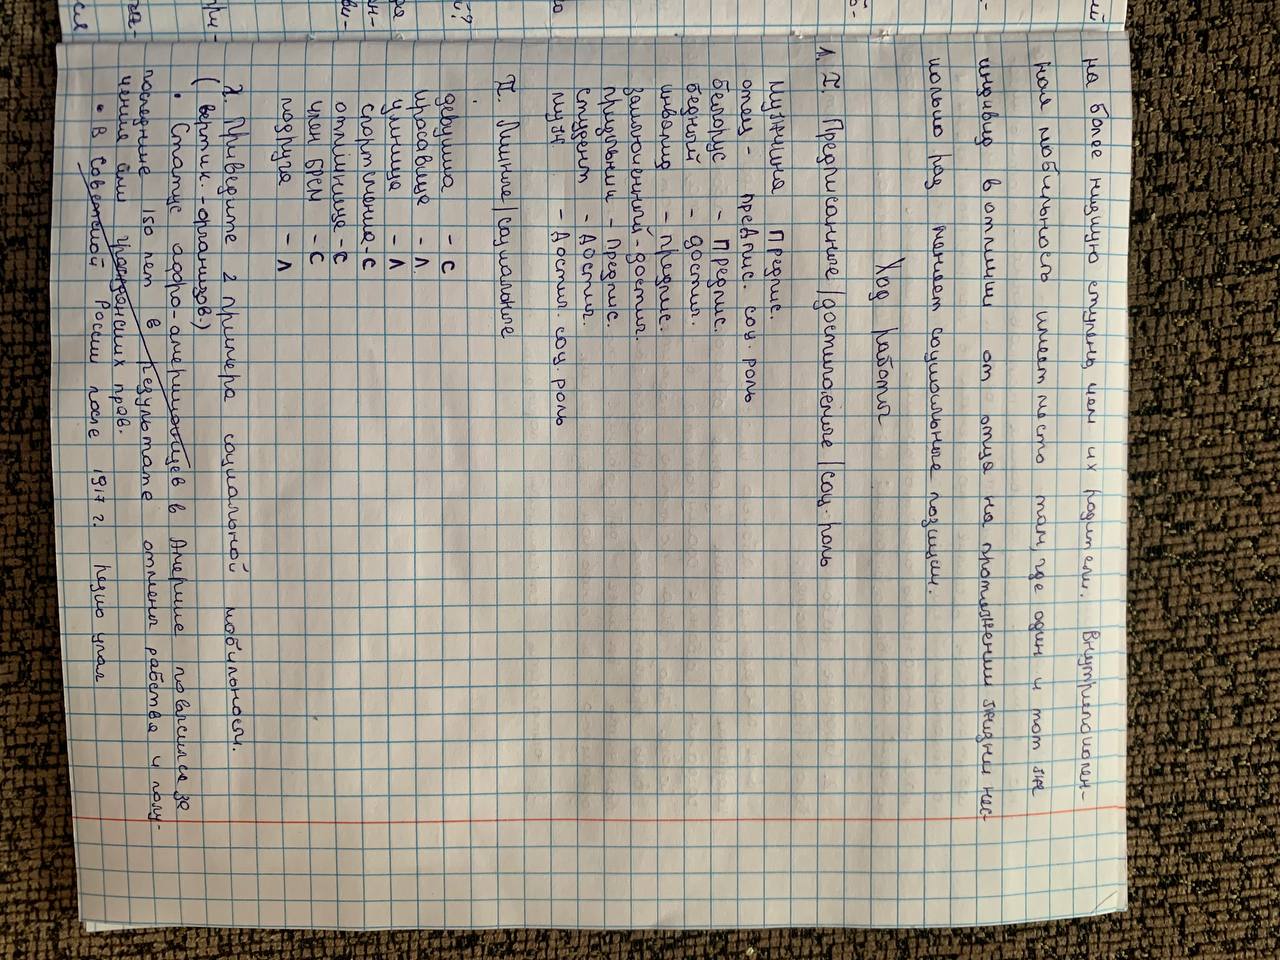 на более низшую ступень, чем их родители. Внутрипоколен-
ная мобильность имеет место там, где один и тот же
индивид в отличии от отца на протяжении жизни нес-
колько раз меняет социальные позиции.
Ход работы
1. I. Предписанные/достигаемые/соц. роль
Мужчина Предпис.
отец - предпис. соц. роль
белорус - Предпис.
бедный - достиг.
инвалид - предпис.
заключенный - достиг.
придурьный - предпис.
студент - достиг.
муж - достиг. соц. роль
II. Личные/социальные
девушка - С
красавица - Л.
умница - Л
спортсменка - С
отличница - С
член БРСМ - С
подруга - Л
2. Приведите 2 примера социальной мобильности.
(вертик. - организов.)
• Статус афро-американцев в Америке повысился за
последние 150 лет в результате отмены рабства и полу-
чения ими гражданских прав.
• В Советской России после 1917 г. резко упал